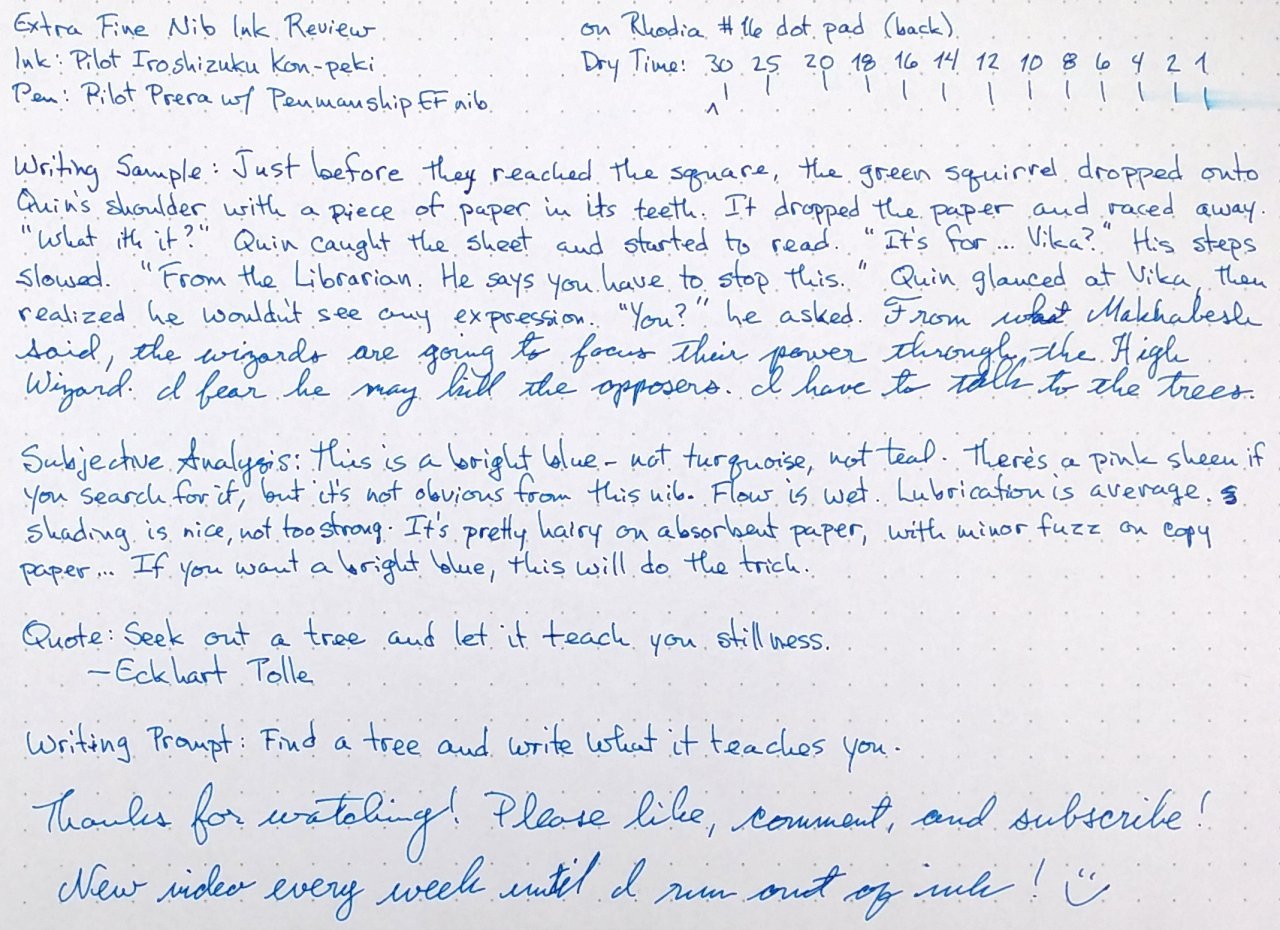 Extra Fine Nib Ink Review
on Rhodia #16 dot pad (back)
Ink: Pilot Iroshizuku Kon-peki
Dry Time: 30 25 20 18 16 14 12 10 8 6 4 2 1
Pen: Pilot Prera w/ Penmanship EF nib
Writing Sample: Just before they reached the square, the green squirrel dropped onto
Quin's shoulder with a piece of paper in its teeth. It dropped the paper and raced away.
"What ith it?" Quin caught the sheet and started to read. "It's for... Vika?" His steps
slowed. "From the Librarian. He says you have to stop this." Quin glanced at Vika, then
realized he wouldn't see any expression. "You?" he asked. From what Makhabesh
said, the wizards are going to focus their power through the High
Wizard. I fear he may kill the opposers. I have to talk to the trees.
Subjective Analysis: This is a bright blue - not turquoise, not teal. There's a pink sheen if
you search for it, but it's not obvious from this nib. Flow is wet. Lubrication is average. s
shading is nice, not too strong. It's pretty hairy on absorbent paper, with minor fuzz on copy
paper... If you want a bright blue, this will do the trick.
Quote: Seek out a tree and let it teach you stillness.
—Eckhart Tolle
Writing Prompt: Find a tree and write what it teaches you.
Thanks for watching! Please like, comment, and subscribe!
New video every week until I run out of ink!